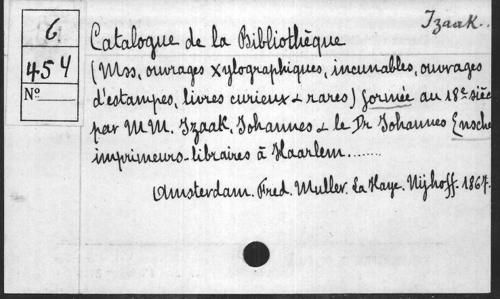 Izaak.
6
454
Nº
Catalogue de la Bibliothèque
(Mss, ouvrages xylographiques, incunables, ouvrages
d'estampes, livres curieux & rares) formée au 18e sièc
par MM. Izaak, Johannes & le Dr Johannes Ensche
imprimeurs-libraires à Haarlem........
Amsterdam. Fred. Muller. La Haye. Nijhoff. 1867.